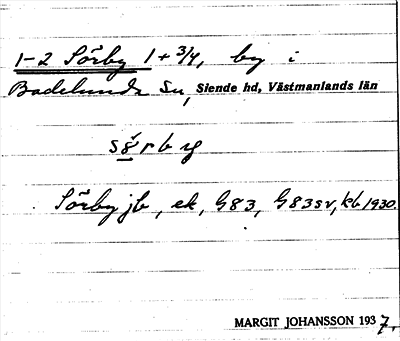 1-2 Sörby 1+3/4, by i
Badelunda sn, Siende hd, Västmanlands län
Sörby jb, ek, G83, G83sv, kb 1930.
MARGIT JOHANSSON 1937.